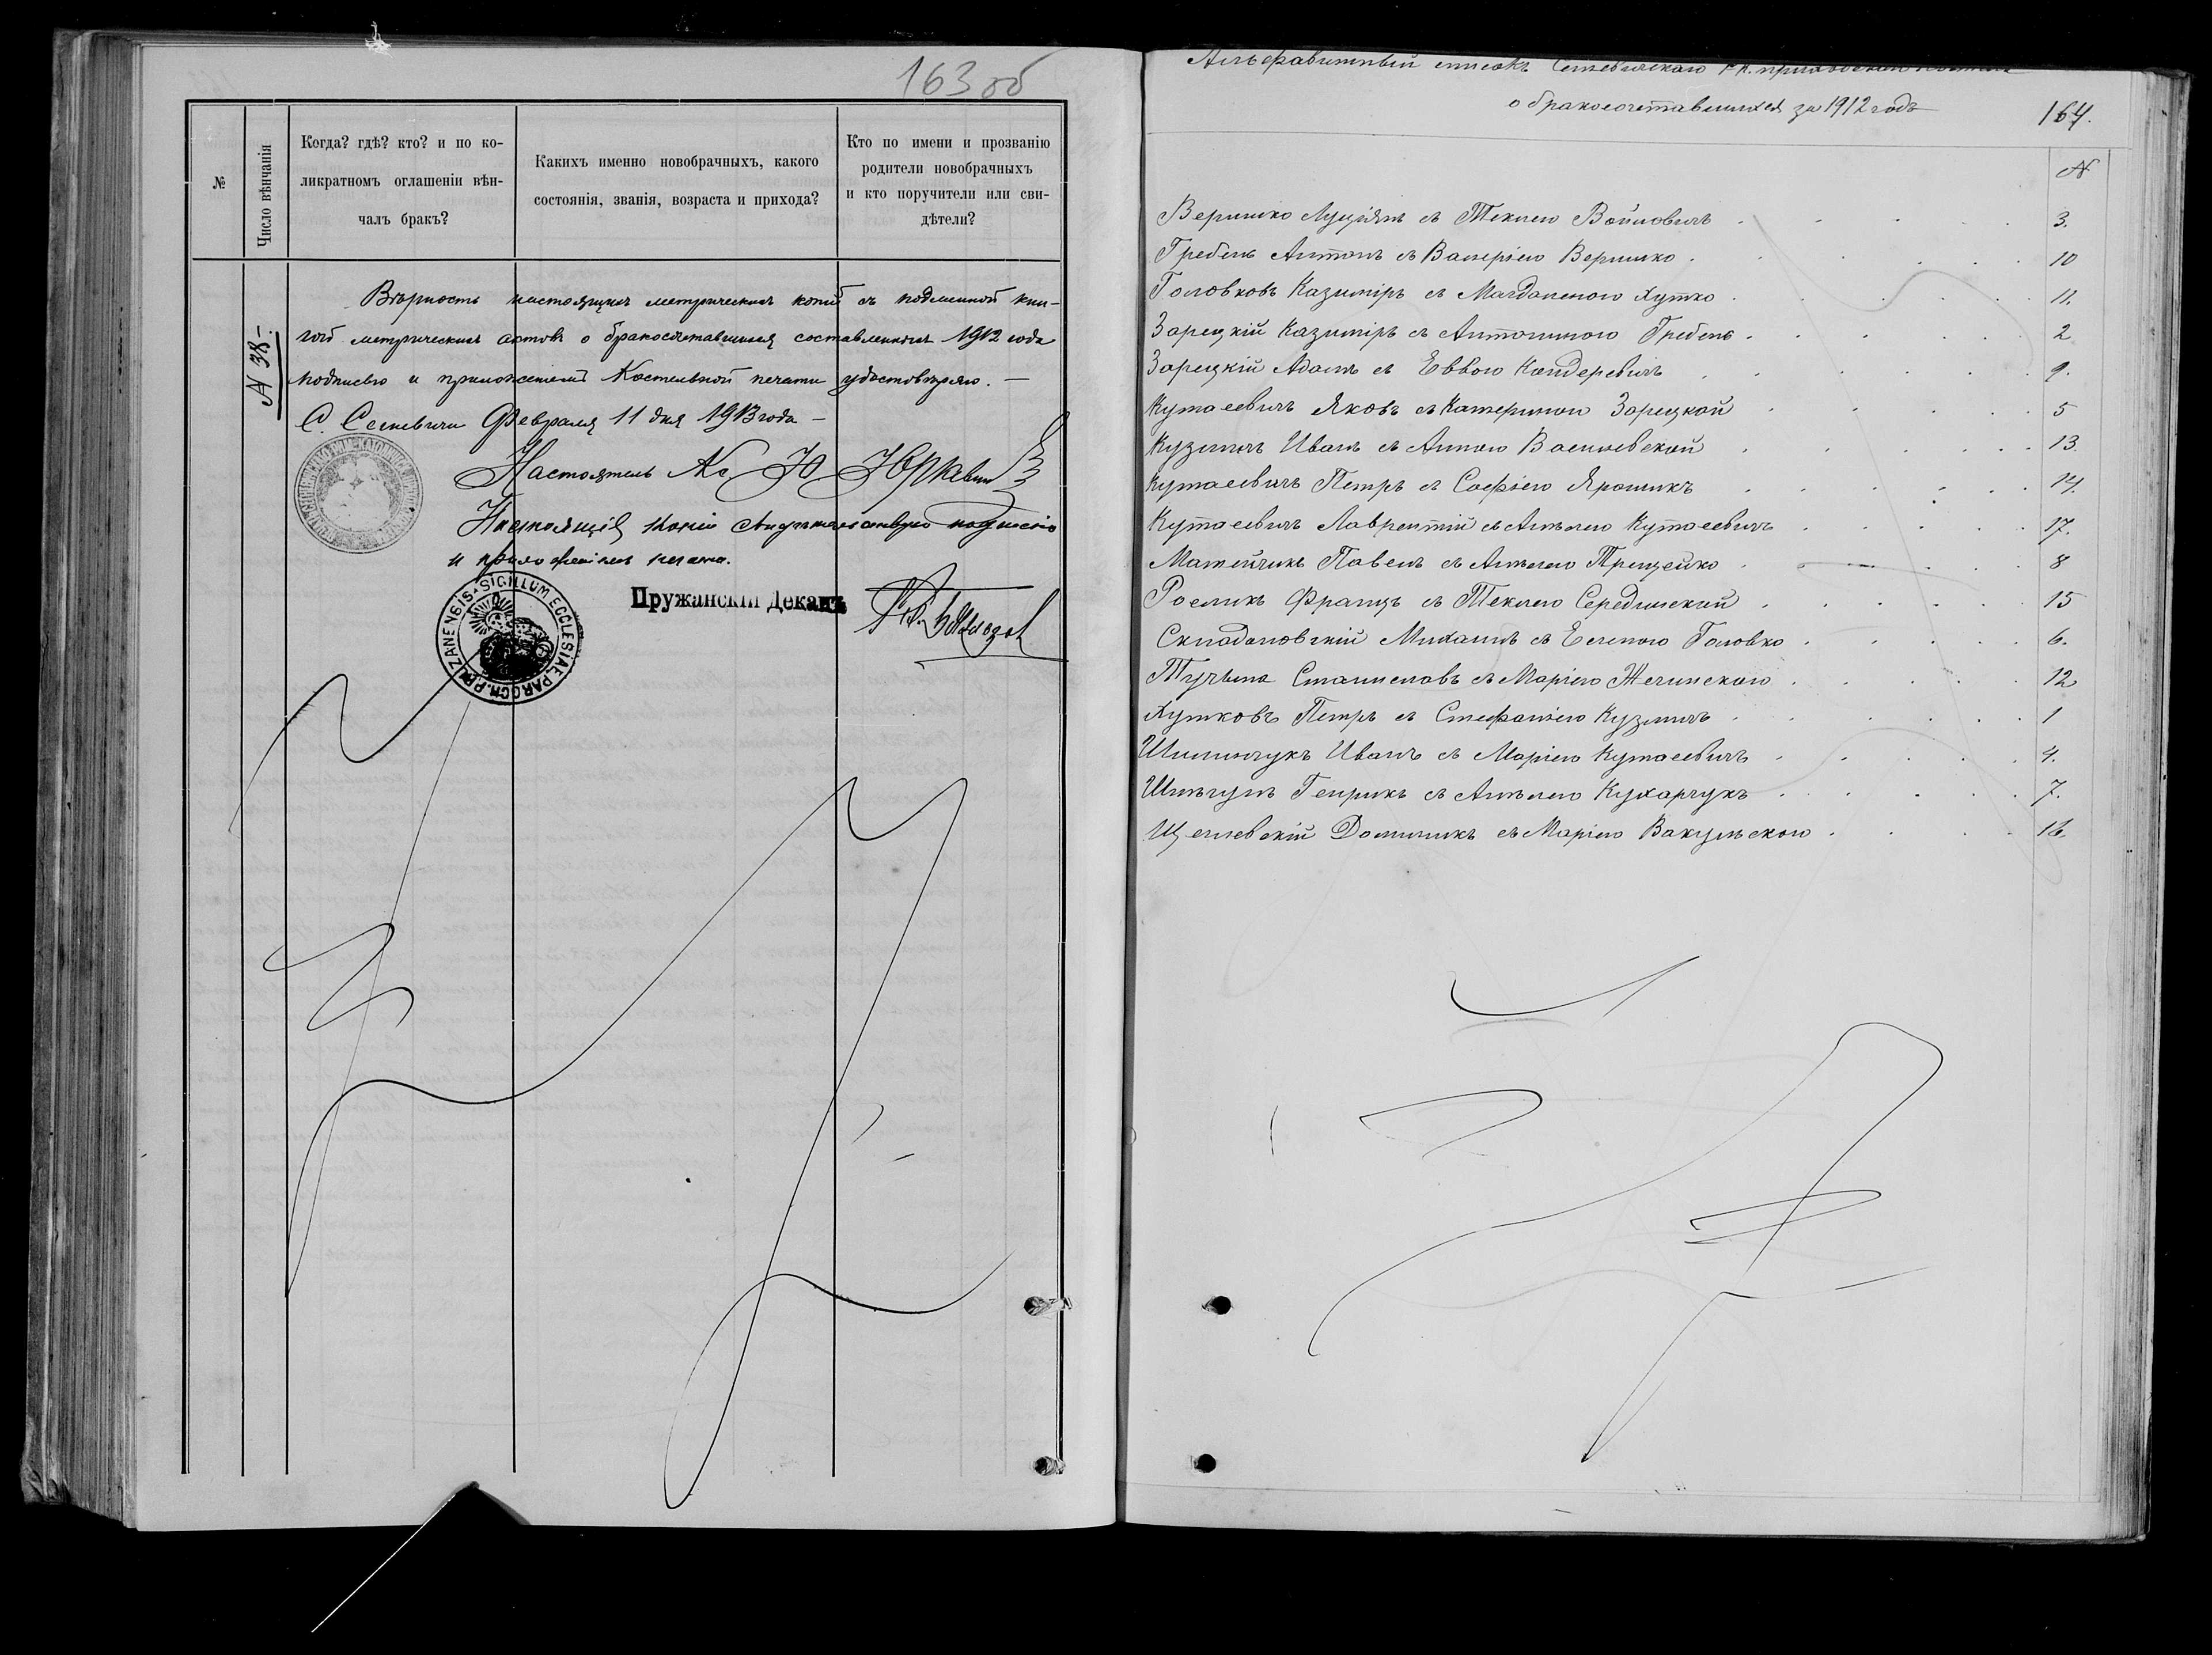 163 об
№
Число вѣнчанія
Когда? гдѣ? кто? и по ко-
ликратномъ оглашеніи вѣн-
чалъ бракъ?
Какихъ именно новобрачныхъ, какого
состоянія, званія, возраста и прихода?
Кто по имени и прозванію
родители новобрачныхъ
и кто поручители или сви-
дѣтели?
N 38
Вѣрность настоящихъ метрическихъ копій съ подлинной кни-
гой метрическихъ актовъ о бракосочетавшихся составленныхъ 1912 года
подписью и приложеніемъ Костельной печати удостовѣряю. —
С. Сехневичи Февраля 11 дня 1913 года —
Настоятель Кс. Ю Юркевич
Настоящія копіи подписью
и приложеніемъ печати.
SIGILLUM ECCLESIAE PAROCH. PRUZANENSIS
Пружанскій Деканъ
Альфавитный списокъ Сехневичскаго Р.К. приходскаго костела
о бракосочетавшихся за 1912 годъ
164.
N
Веришко Луціянъ съ Теклею Войновичъ 3.
Гребень Антонъ съ Валеріею Веришко 10
Головковъ Казиміръ съ Магдаленою Хутко 11.
Зарецкій Казиміръ съ Антониною Гребень 2
Зарецкій Адамъ съ Еввою Кандеревичъ 9.
Кутасевичъ Яковъ съ Катериною Зарецкой 5
Кузмичъ Иванъ съ Анною Василевской 13.
Кутасевичъ Петръ съ Софіею Ярошикъ 14.
Кутасевичъ Лаврентій съ Анѣлею Кутасевичъ 17.
Матейчикъ Павелъ съ Анѣлею Трещейко 8
Росликъ Францъ съ Теклею Серединской 15
Складановскій Михаилъ съ Еленою Головко 6.
Тучина Станиславъ съ Маріею Желинскою 12
Хутковъ Петръ съ Стефаніею Кузмичъ 1
Шилинчукъ Иванъ съ Маріею Кутасевичъ 4.
Шпигунъ Генрикъ съ Анѣлею Кухарчукъ 7.
Щеглевскій Доминикъ съ Маріею Вакульскою 16.